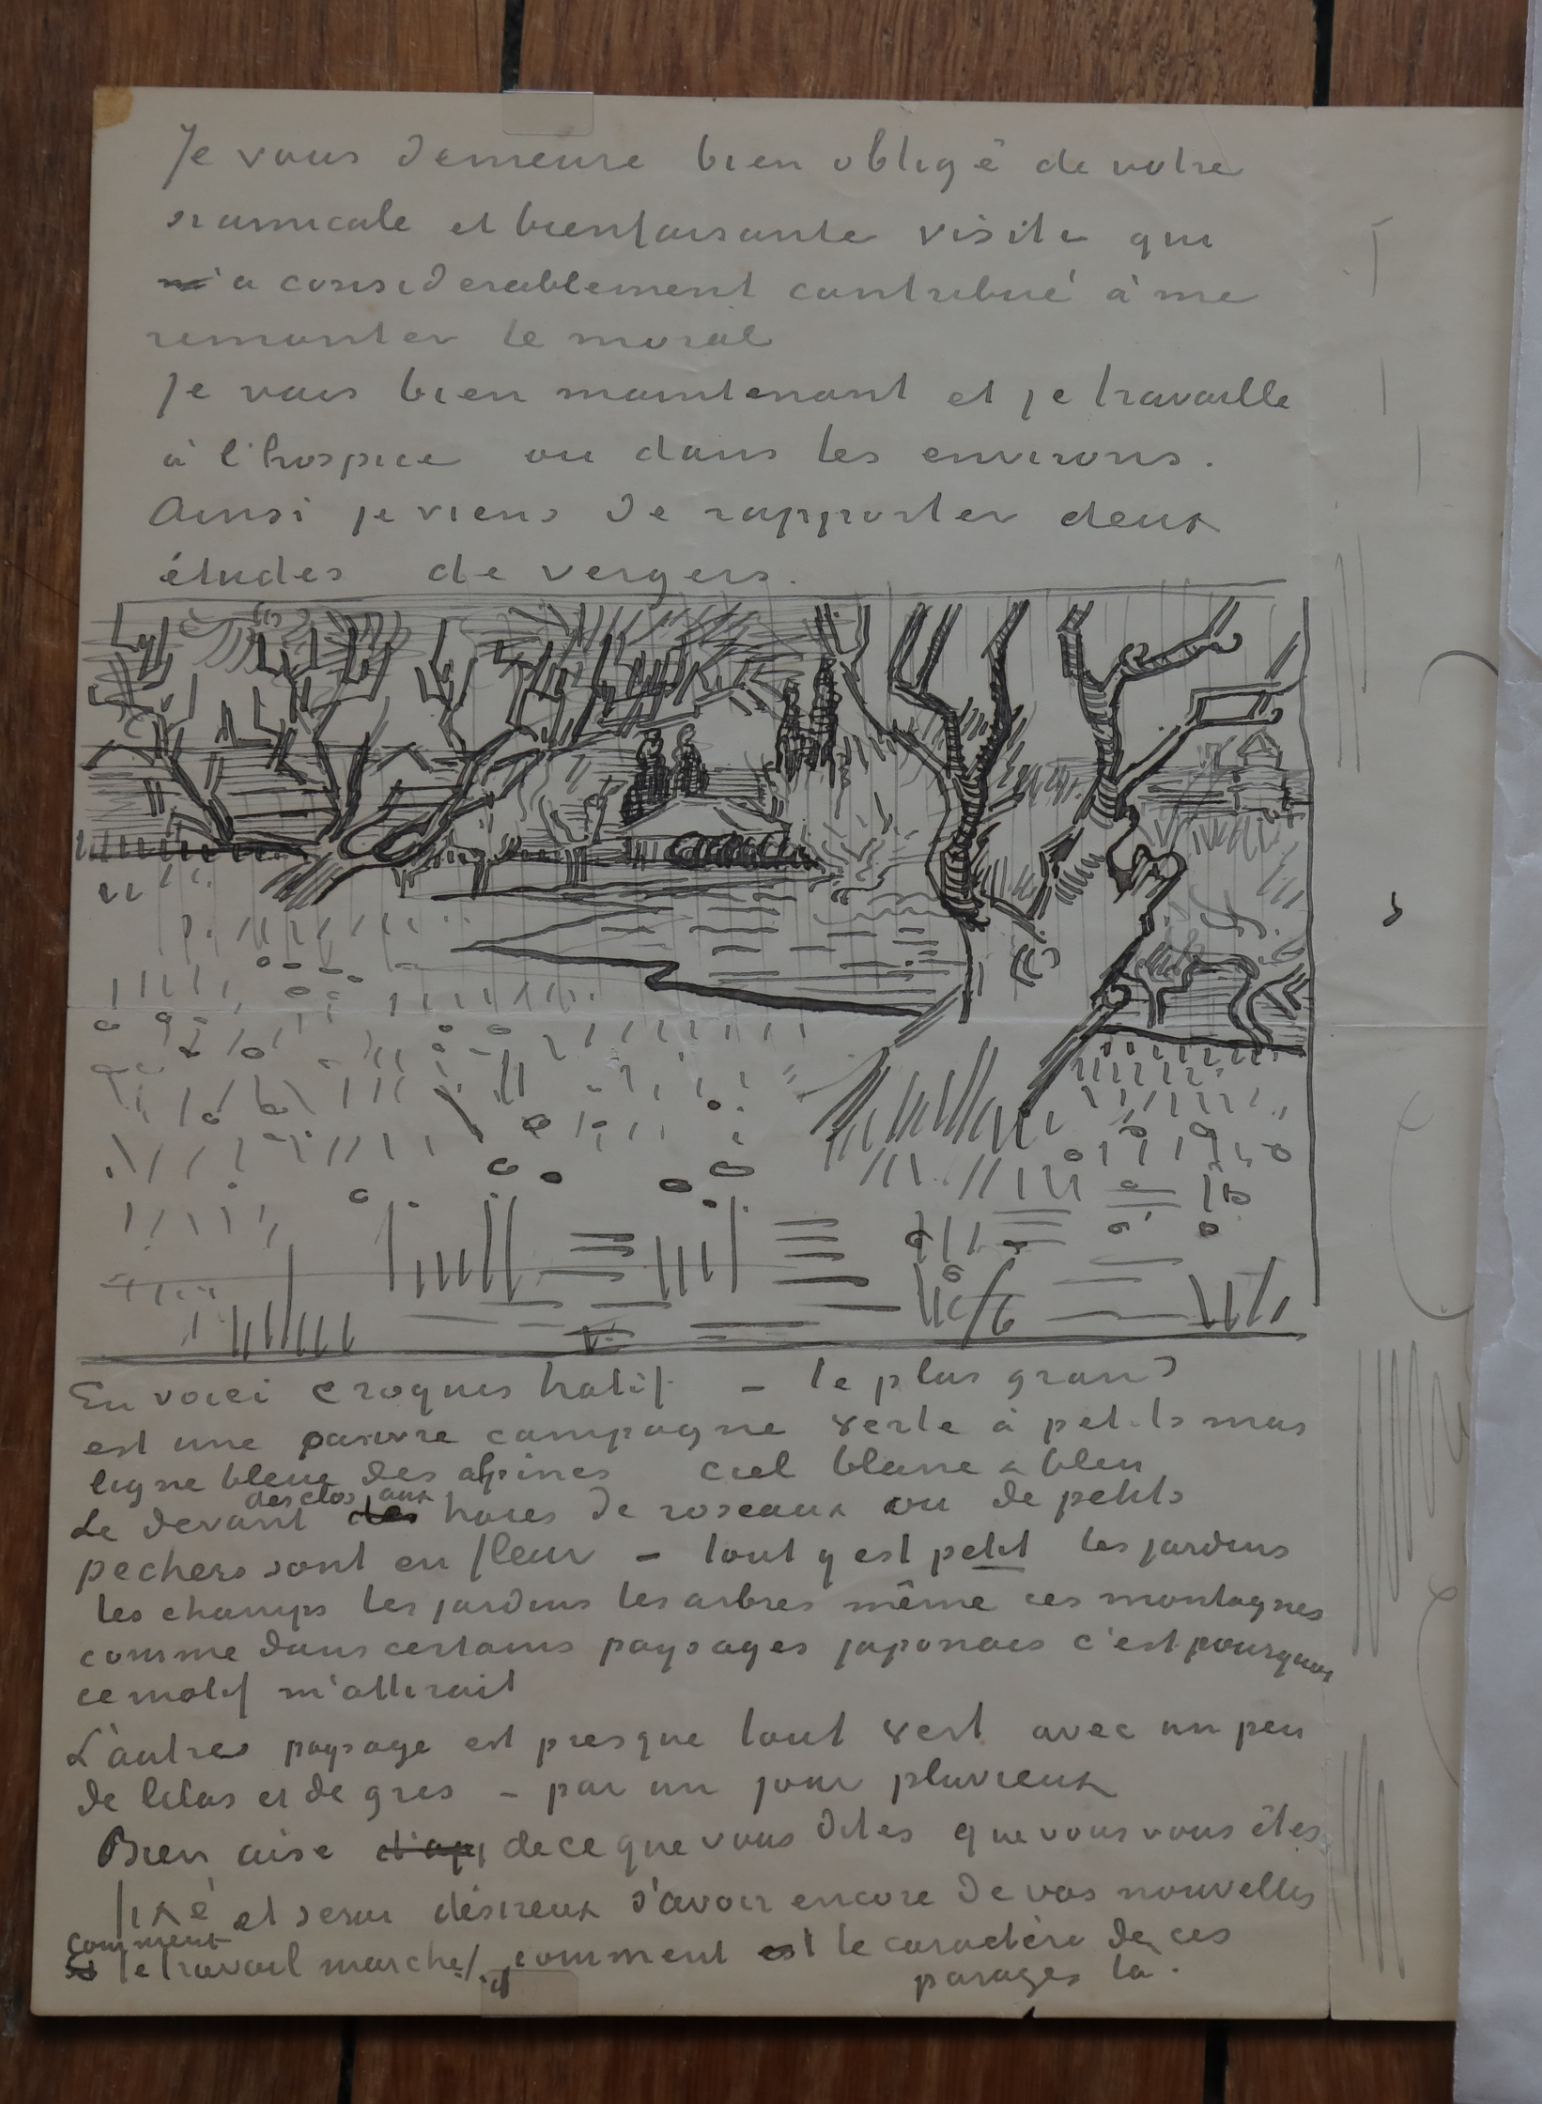 Je vous demeure bien obligé de votre
si amicale et bienfaisante visite qui
m'a considerablement contribué à me
remonter le moral
Je vais bien maintenant et je travaille
à l'hospice ou dans les environs.
Ainsi je viens de rapporter deux
études de vergers.
En voici croquis hatif – le plus grand
est une pauvre campagne verte à petits mas
ligne bleue des alpines ciel blanc & bleu
des clos aux
Le devant des haies de roseaux ou de petits
pechers sont en fleur – tout y est petit les jardins
les champs les jardins les arbres même ces montagnes
comme dans certains paysages japonais c'est pourquoi
ce motif m'attirait
L'autre paysage est presque tout vert avec un peu
de lilas et de gris – par un jour pluvieux
Bien aise d'ap de ce que vous dites que vous vous êtes
fixé et serai désireux d'avoir encore de vos nouvelles
comment
si le travail marche, comment est le caractère de ces
parages là.